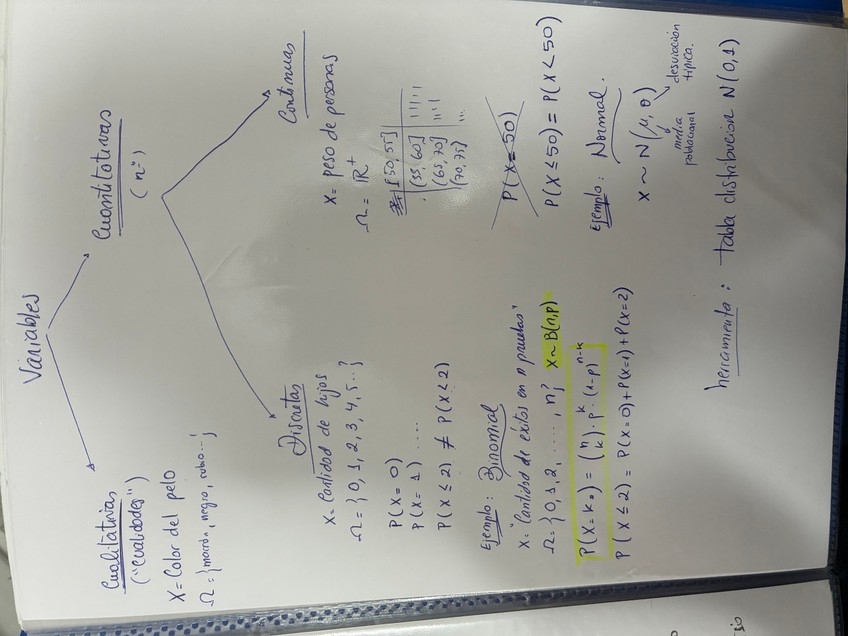 Variables
Cualitativas
("cualidades")
X = Color del pelo
Ω = {marrón, negro, rubio...}
Cuantitativas
(nº)
Discretas
X = Cantidad de hijos
Ω = {0, 1, 2, 3, 4, 5...}
P(X = 0)
P(X = 1) ....
P(X ≤ 2) ≠ P(X < 2)
Ejemplo: Binomial
X = "Cantidad de éxitos en n pruebas"
Ω = {0, 1, 2, ....., n} X ~ B(n,p)
P(X = k) = (n k) · p^k · (1-p)^(n-k)
P(X ≤ 2) = P(X=0) + P(X=1) + P(X=2)
Continuas
X = peso de personas
Ω = ℝ+
[50, 55] | | | | |
(55, 60] | | | |
(65, 70] ...
(70, 75)
P(X = 50)
P(X ≤ 50) = P(X < 50)
Ejemplo: Normal.
X ~ N(μ, σ)
media poblacional
desviación típica.
herramienta: tabla distribución N(0,1)